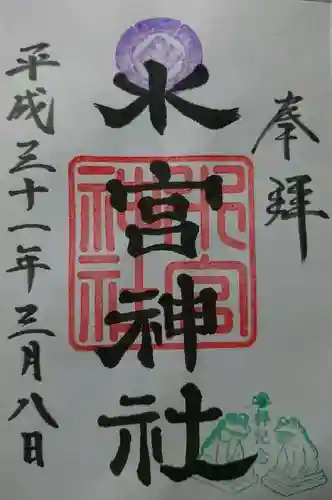 奉拝
水宮神社
水宮神社
平成三十一年三月八日